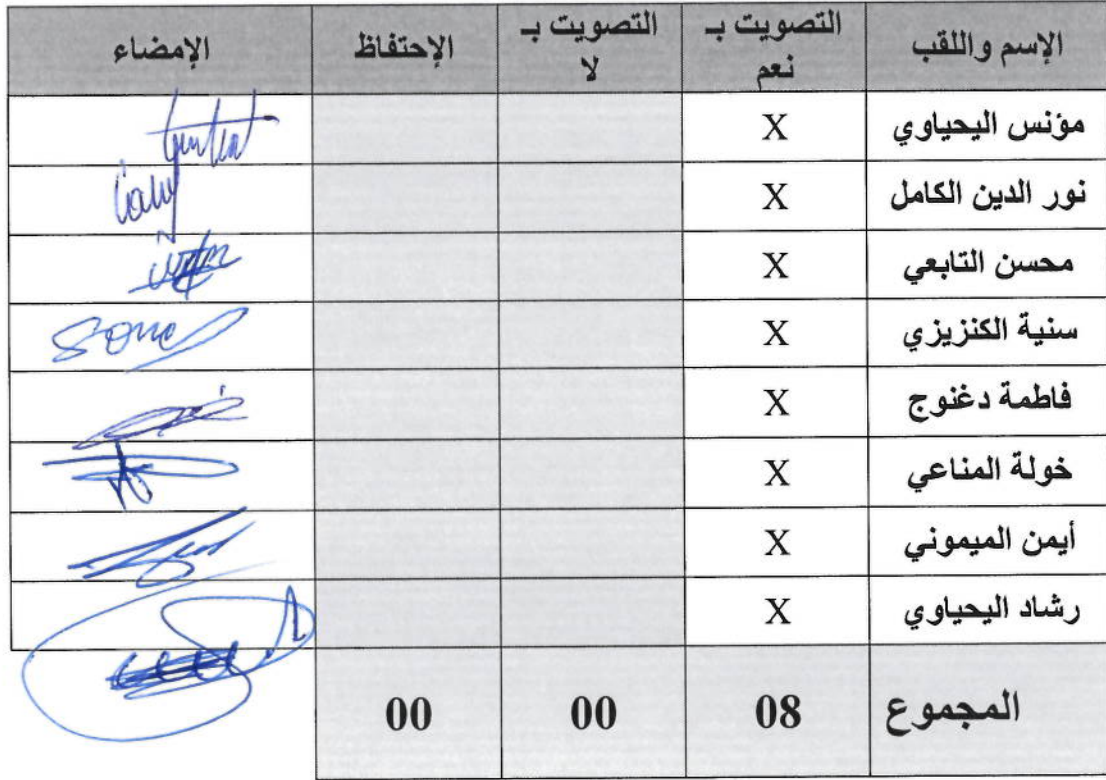 الإسم واللقب التصويت بـ نعم التصويت بـ لا الإحتفاظ الإمضاء
مؤنس اليحياوي X
نور الدين الكامل X
محسن التابعي X
سنية الكنزيزي X
فاطمة دغنوج X
خولة المناعي X
أيمن الميموني X
رشاد اليحياوي X
المجموع 08 00 00